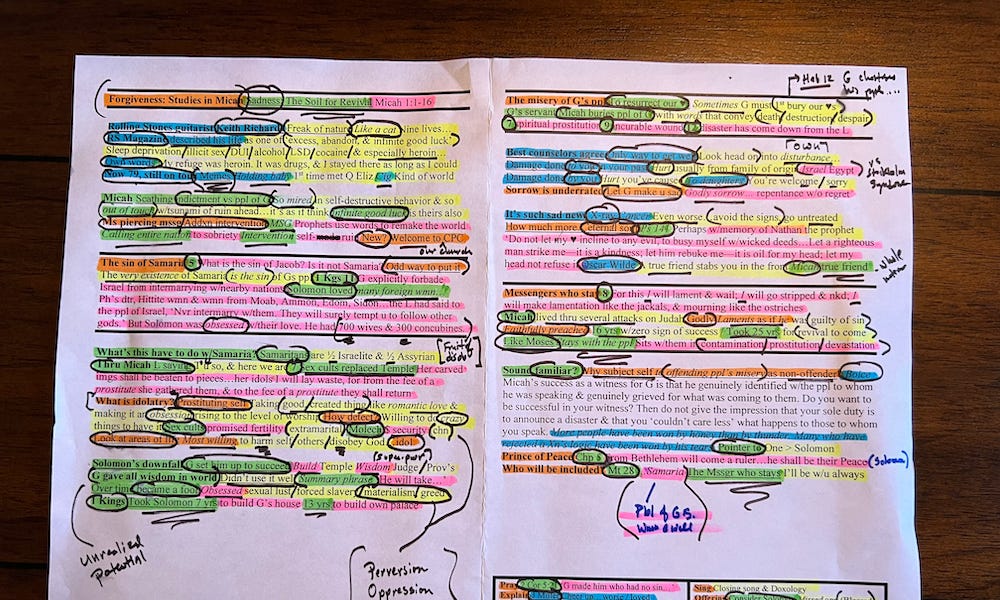 Forgiveness: Studies in Micah Sadness: The Soil for Revival Micah 1:1-16
Rolling Stones guitarist Keith Richard Freak of nature Like a cat nine lives…
RS Magazine described his life as one of excess, abandon, & infinite good luck
Sleep deprivation/illicit sex/DUI/alcohol/LSD/cocaine, & especially heroin…
Own words My refuge was heroin. It was drugs, & I stayed there as long as I could
Now 79, still on tour Meme Holding baby 1st time met Q Eliz Cig Kind of world
Micah Scathing indictment vs ppl of G So mired in self-destructive behavior & so
out of touch w/tsunami of ruin ahead…it's as if think infinite good luck is theirs also
Ms piercing mssg Addxn intervention MSG Prophets use words to remake the world
Calling entire nation to sobriety Intervention self- ruin New? Welcome to CPC
our church
The sin of Samaria 5 What is the sin of Jacob? Is it not Samaria Odd way to put it
The very existence of Samaria is the sin of Gs ppl 1 Kgs 11 G exclusively forbade
Israel from intermarrying w/nearby nations Solomon loved many foreign wmn…
Ph's dtr, Hittite wmn & wmn from Moab, Ammon, Edom, Sidon…the L had said to
the ppl of Israel, 'Nvr intermarry w/them. They will surely tempt u to follow other
gods.' But Solomon was obsessed w/their love. He had 700 wives & 300 concubines.
[Fruit of disob]
What's this have to do w/Samaria? Samaritans are ½ Israelite & ½ Assyrian
Thru Micah L saying 'I so, & here we are 7 Sex cults replaced Temple Her carved
imgs shall be beaten to pieces…her idols I will lay waste, for from the fee of a
prostitute she gathered them, & to the fee of a prostitute they shall return
What is idolatry? Prostituting self Taking good/created thing like romantic love &
making it an obsession rising to the level of worship How detect? Willing to do crazy
things to have it Sex cults promised fertility/extramarital Molech security/chn
Look at areas of life Most willing to harm self/others/disobey God idol
Solomon's downfall G set him up to succeed Build Temple Wisdom Judge/Prov's
G gave all wisdom in world Didn't use it well Summary phrase He will take…'
Over time became a fool Obsessed sexual lust/forced slavery/materialism/greed
1 Kings Took Solomon 7 yrs to build G's house 13 yrs to build own palace
Unrealized
Potential
Perversion
Oppression
Heb 12 G chastens
his ppl….
The misery of G's ppl To resurrect our ♥ Sometimes G must 1st bury our ♥s
G's servant Micah buries ppl of G with words that convey death/destruction/despair
7 spiritual prostitution 9 incurable wound 12 disaster has come down from the L
[own?]
Best counselors agree Only way to get well Look head on into disturbance
Damage done to you Hurt usually from family of origin Israel/Egypt
Damage done by you Hurt you've cause To daughters You're welcome/sorry
Sorrow is underrated Let G make u sad Godly sorrow… repentance w/o regret
vs
Stockholm
Syndrome
It's such sad news X-ray/cancer Even worse (avoid the signs) go untreated
How much more eternal soul Ps 141 Perhaps w/memory of Nathan the prophet
'Do not let my ♥ incline to any evil, to busy myself w/wicked deeds…Let a righteous
man strike me—it is a kindness; let him rebuke me—it is oil for my head; let my
head not refuse it Oscar Wilde A true friend stabs you in the front Micah true friend
Messengers who stay 8 For this I will lament & wail; I will go stripped & nkd; I
will make lamentation like the jackals, & mourning like the ostriches
Micah lived thru several attacks on Judah Godly Laments as if he was guilty of sin
Faithfully preaches 16 yrs w/zero sign of success/Took 25 yrs for revival to come
Like Moses Stays with the ppl Sits w/them in contamination/prostitution/devastation
Sound familiar? Why subject self to offending ppl's misery as non-offender Boice
Micah's success as a witness for G is that he genuinely identified w/the ppl to whom
he was speaking & genuinely grieved for what was coming to them. Do you want to
be successful in your witness? Then do not give the impression that your sole duty is
to announce a disaster & that you 'couldn't care less' what happens to those to whom
you speak. More people have been won by honey than by thunder. Many who have
rejected a Xn's logic have been won by his tears Pointer to One > Solomon
Prince of Peace Chp 5 from Bethlehem will come a ruler…he shall be their Peace (Solomon)
Who will be included? Mt 28 Samaria The Mssger who stays I'll be w/u always
Ppl of G
Sing Closing song & Doxology